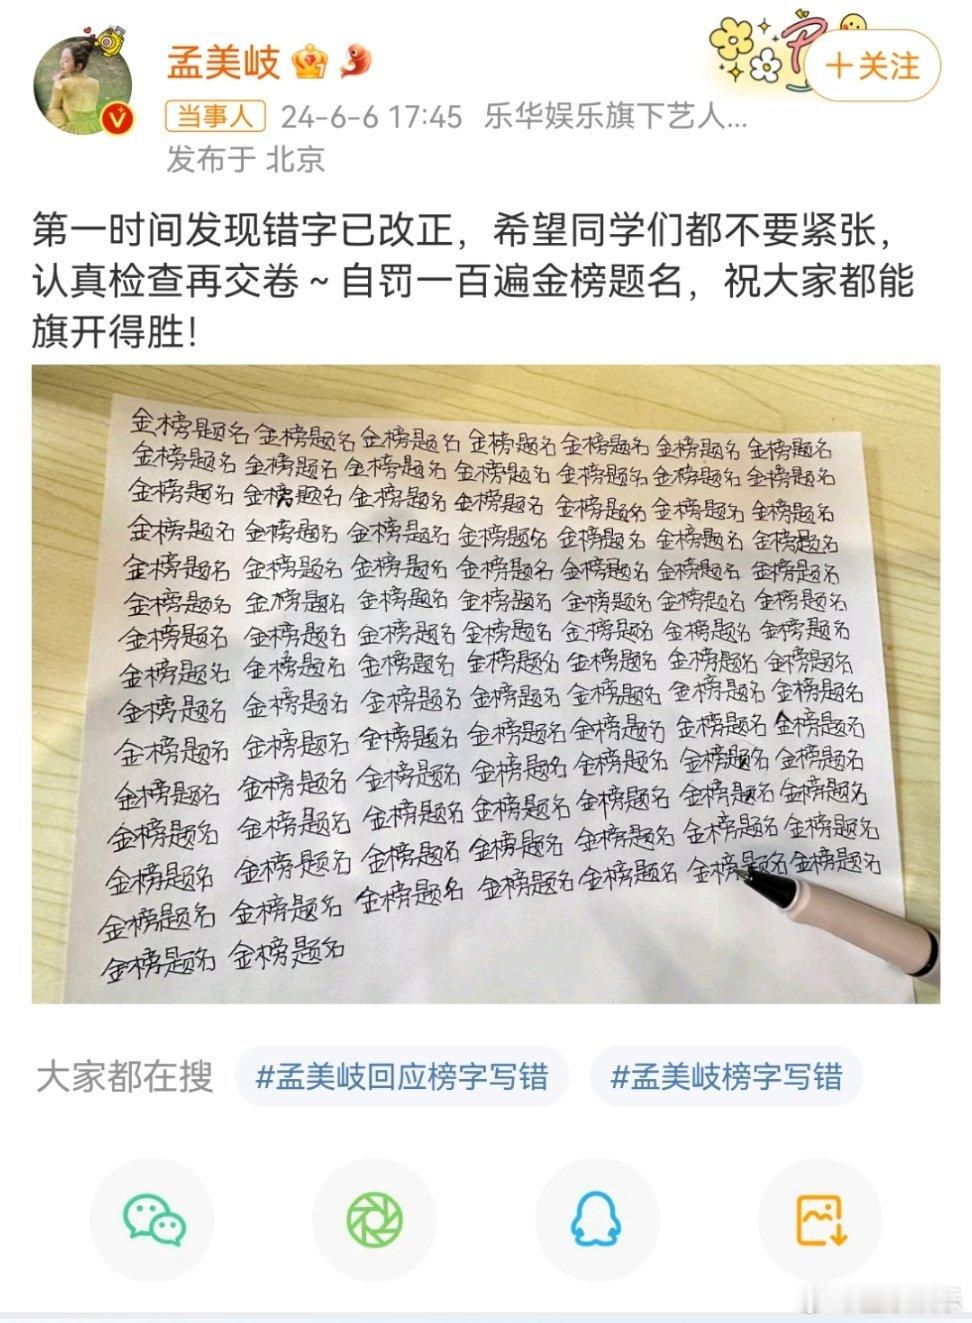 孟美岐
十关注
当事人 24-6-6 17:45 乐华娱乐旗下艺人...
发布于 北京
第一时间发现错字已改正，希望同学们都不要紧张，
认真检查再交卷～自罚一百遍金榜题名，祝大家都能
旗开得胜！
金榜题名 金榜题名 金榜题名 金榜题名 金榜题名 金榜题名 金榜题名
金榜题名 金榜题名 金榜题名 金榜题名 金榜题名 金榜题名 金榜题名
金榜题名 金榜题名 金榜题名 金榜题名 金榜题名 金榜题名 金榜题名
金榜题名 金榜题名 金榜题名 金榜题名 金榜题名 金榜题名 金榜题名
金榜题名 金榜题名 金榜题名 金榜题名 金榜题名 金榜题名 金榜题名
金榜题名 金榜题名 金榜题名 金榜题名 金榜题名 金榜题名 金榜题名
金榜题名 金榜题名 金榜题名 金榜题名 金榜题名 金榜题名 金榜题名
金榜题名 金榜题名 金榜题名 金榜题名 金榜题名 金榜题名 金榜题名
金榜题名 金榜题名 金榜题名 金榜题名 金榜题名 金榜题名 金榜题名
金榜题名 金榜题名 金榜题名 金榜题名 金榜题名 金榜题名 金榜题名
金榜题名 金榜题名 金榜题名 金榜题名 金榜题名 金榜题名 金榜题名
金榜题名 金榜题名 金榜题名 金榜题名 金榜题名 金榜题名 金榜题名
金榜题名 金榜题名 金榜题名 金榜题名 金榜题名 金榜题名 金榜题名
金榜题名 金榜题名 金榜题名 金榜题名 金榜题名 金榜题名 金榜题名
金榜题名 金榜题名
大家都在搜 #孟美岐回应榜字写错 #孟美岐榜字写错